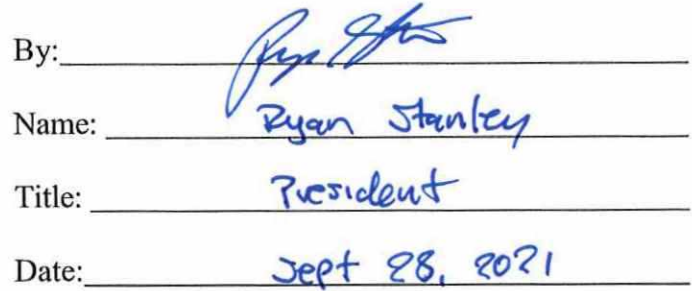 By:
Name: Ryan Stanley
Title: President
Date: Sept 28, 2021